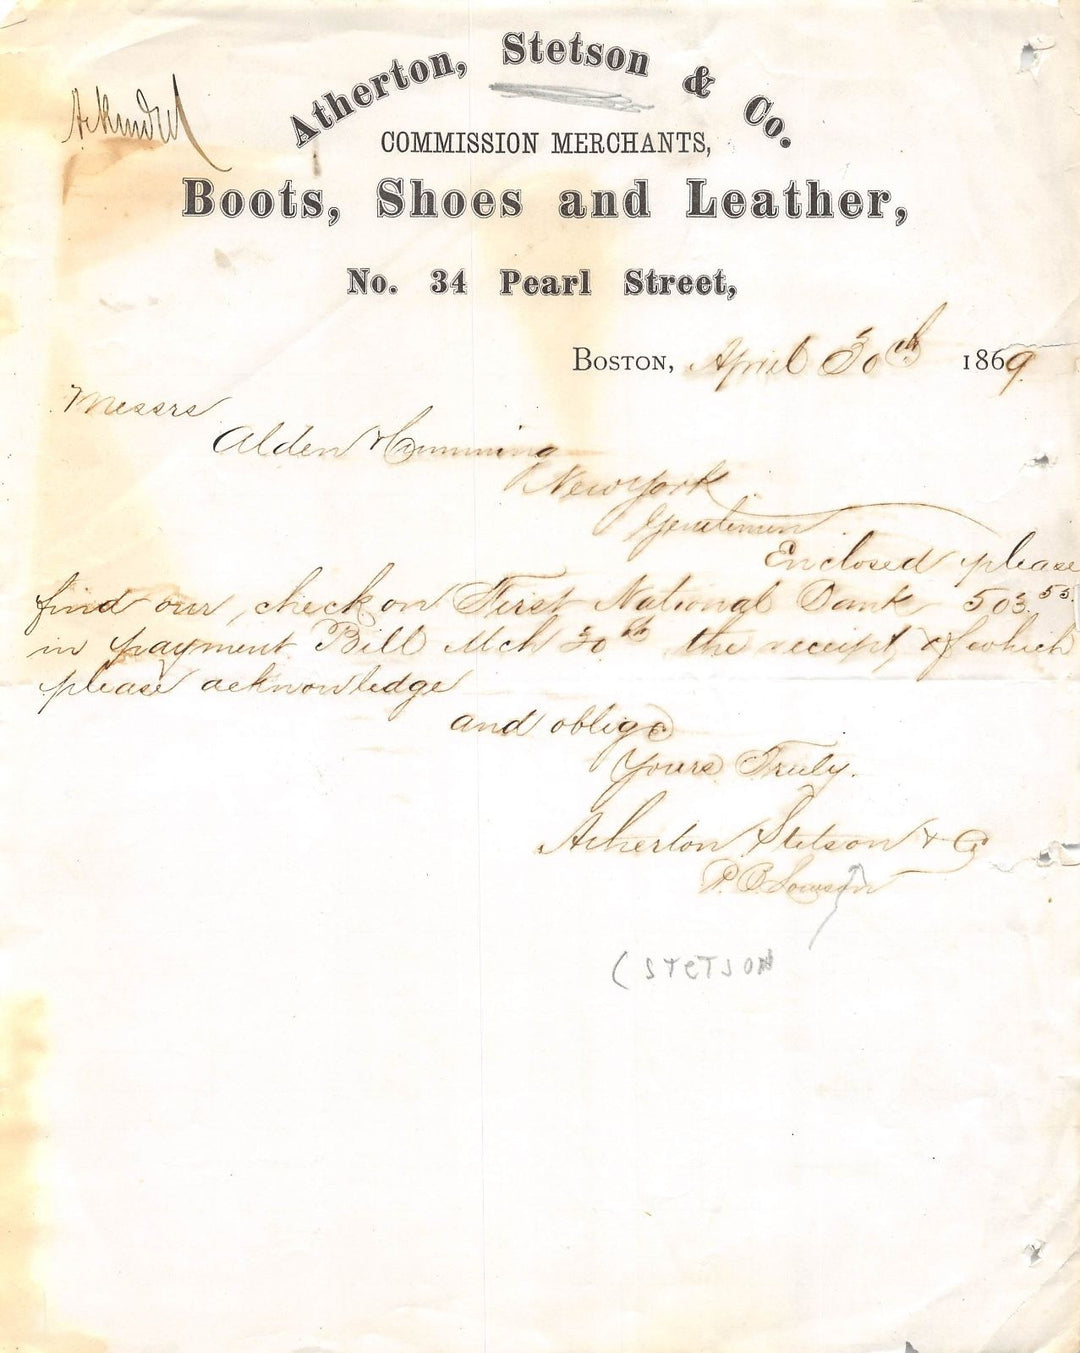 Ackmdgd
Atherton, Stetson & Co.
COMMISSION MERCHANTS,
Boots, Shoes and Leather,
No. 34 Pearl Street,
BOSTON, April 30th 1869
Messrs
Alden & Cumming
New York
Gentlemen
Enclosed please
find our check on First National Bank 503.55
in payment Bill Mch 30th the receipt of which
please acknowledge
and oblige
Yours Truly.
Atherton Stetson & Co
(STETSON